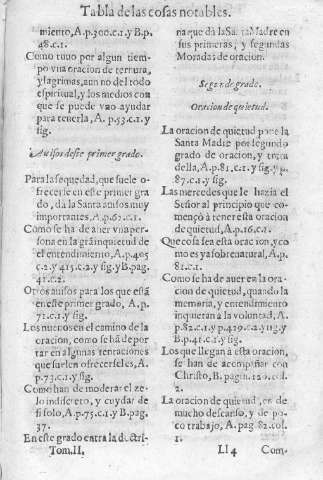 Tabla de las cosas notables.
miento, A.p.300.c.1.y B.p.
48.c.1.
Como tuuo por algun tiem-
po vna oracion de ternura,
y lagrimas, aun no del todo
espiritual, y los medios con
que se puede vno ayudar
para tenerla, A.p.53.c.1.y
sig.
Auisos deste primer grado.
Para la sequedad, que suele o-
frecerse en este primer gra
do, da la Santa auisos muy
importantes, A.p.62.c.1.
Como se ha de auer vna per-
sona en la gră inquietud de
el entendimiento, A.p.405
c.2.y 415.c.2.y sig.y B.pag.
41.c.2.
Otros auisos para los que está
en este primer grado, A.p.
71.c.1.y sig.
Los nueuos en el camino de la
oracion, como se há de por
tar en algunas tentaciones
que suelen ofrecerseles, A.
p.73.c.1.y sig.
Como han de moderar el ze-
lo indiscreto, y cuydar de
si solo, A.p.75.c.1.y B.pag.
37.
En este grado entra la doctri-
Tom.II.
na que dà la Santa Madre en
sus primeras, y segundas
Moradas de oracion.
Segundo grado.
Oracion de quietud.
La oracion de quietud pone la
Santa Madre por segundo
grado de oracion, y trata
della, A.p.81.c.1.y sig.y p.
87.c.1.y sig.
Las mercedes que le hazia el
Señor al principio que co-
mençò à tener esta oracion
de quietud, A.p.16.c.1.
Que cosa sea esta oracion, y co
mo es ya sobrenatural, A.p.
81.c.1.
Como se ha de auer en la ora-
cion de quietud, quando la
memoria, y entendimiento
inquietan à la voluntad, A.
p.82.c.1.y p.419.c.2.y sig.y
B.p.41.c.1.y sig.
Los que llegan à esta oracion,
se han de acompañar con
Christo, B. pagin.120.col.
2.
La oracion de quietud, es de
mucho descanso, y de po-
co trabajo, A. pag.82.col.
1.
Ll 4 Com-